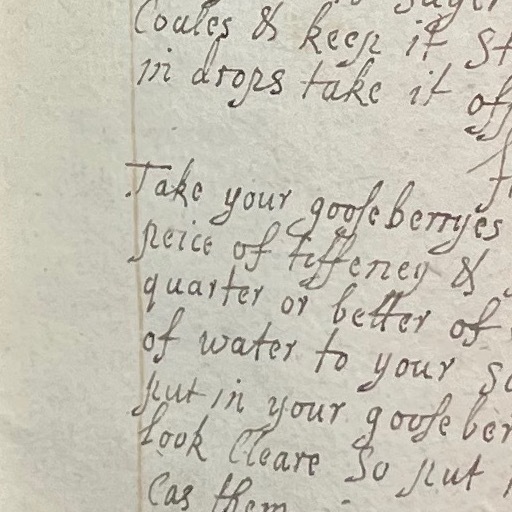 Coales & keep it st
in drops take it off
Take your gooseberryes
peice of tiffeney &
quarter or better of
of water to your
put in your goose ber
look Cleare So put
Cas them